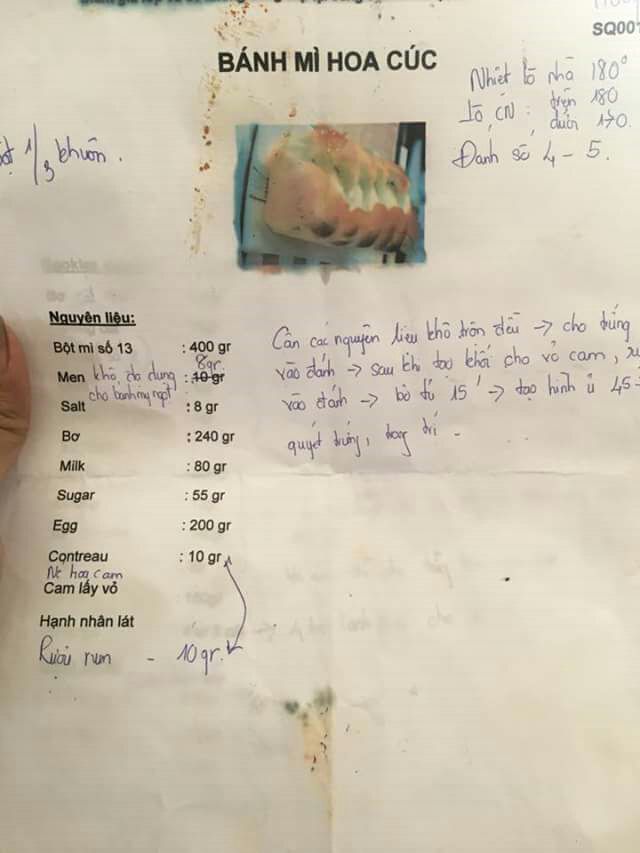 SQ001
BÁNH MÌ HOA CÚC
Nhiệt lò nhà 180°
Lò CN: trên 180
dưới 170.
Đánh số 4 - 5.
1/3 khuôn.
Nguyên liệu:
Bột mì số 13 : 400 gr
8gr.
Men khô, đa dụng : 10 gr
cho bánh mỳ ngọt
Salt : 8 gr
Bơ : 240 gr
Milk : 80 gr
Sugar : 55 gr
Egg : 200 gr
Contreau : 10 gr
Nc hoa cam
Cam lấy vỏ
Hạnh nhân lát
Rượu rum - 10gr.
Cân các nguyên liệu khô trộn đều → cho trứng
vào đánh → sau khi tạo khối cho vỏ cam,
vào đánh → bỏ tủ 15' → tạo hình ủ 45
quyét trứng, trang trí - . . .